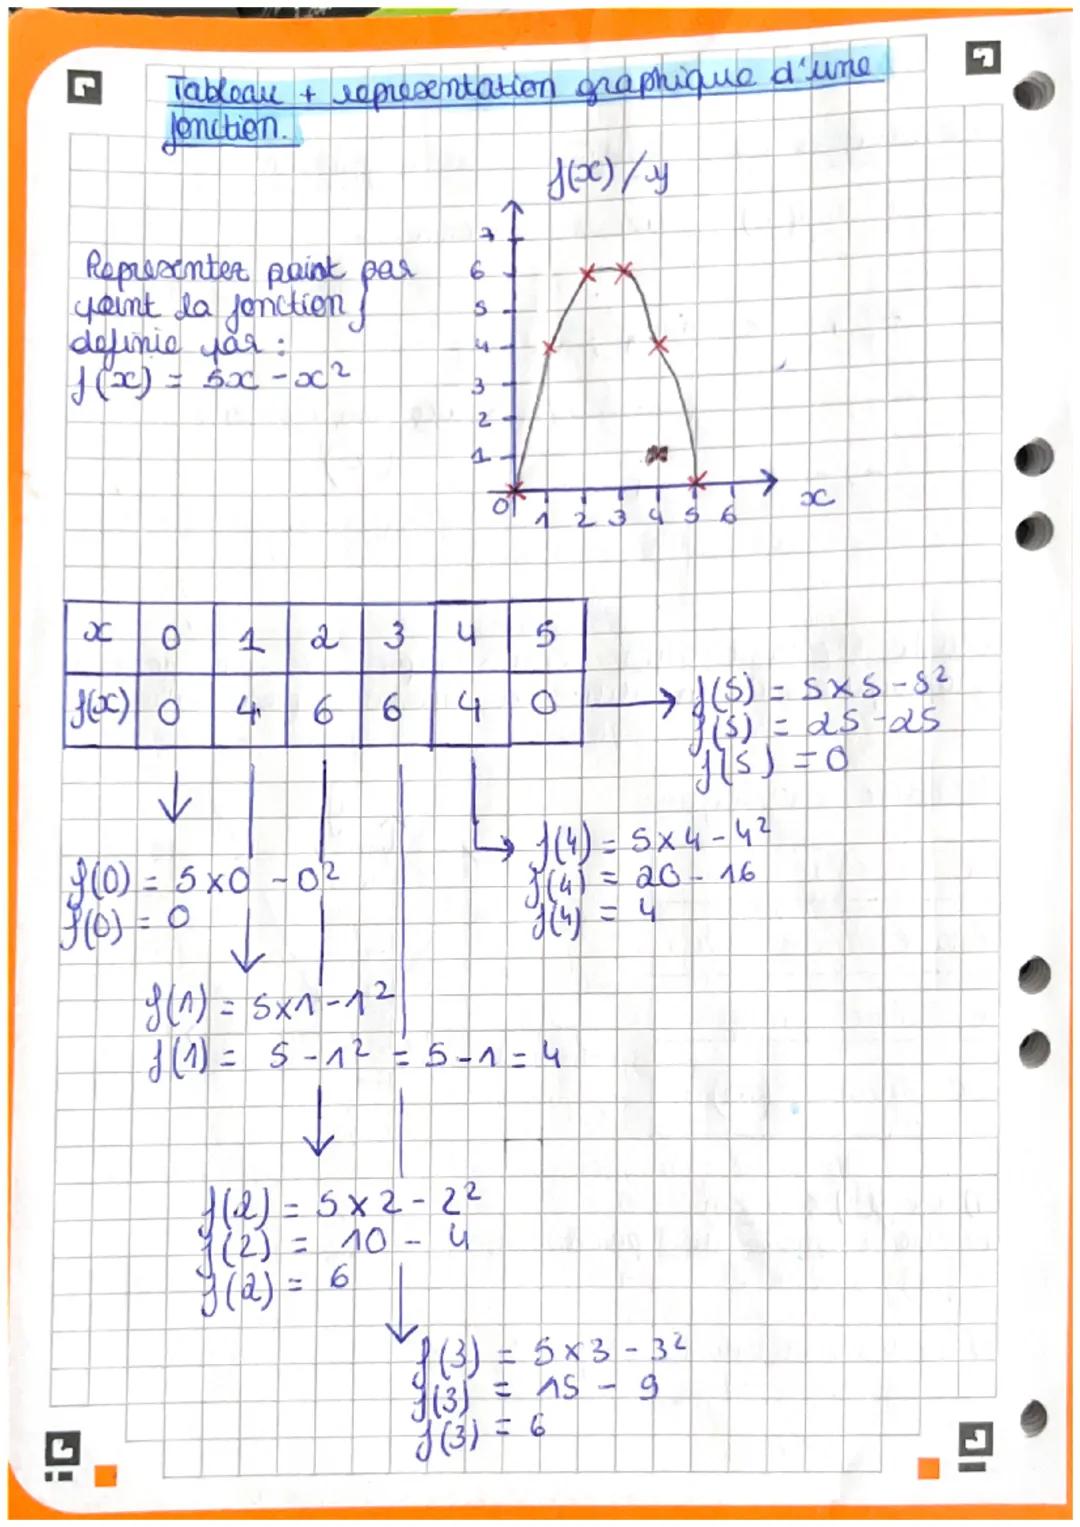 Tableau + représentation graphique d'une
fonction.
f(x) / y
Représenter point par
point la fonction f
définie par :
f(x) = 5x - x²
7
6
5
4
3
2
1
0 1 2 3 4 5 6 x
x 0 1 2 3 4 5
f(x) 0 4 6 6 4 0
f(5) = 5x5 - 5²
f(5) = 25 - 25
f(5) = 0
f(4) = 5x4 - 4²
f(4) = 20 - 16
f(4) = 4
f(0) = 5x0 - 0²
f(0) = 0
f(1) = 5x1 - 1²
f(1) = 5 - 1² = 5 - 1 = 4
f(2) = 5x2 - 2²
f(2) = 10 - 4
f(2) = 6
f(3) = 5x3 - 3²
f(3) = 15 - 9
f(3) = 6